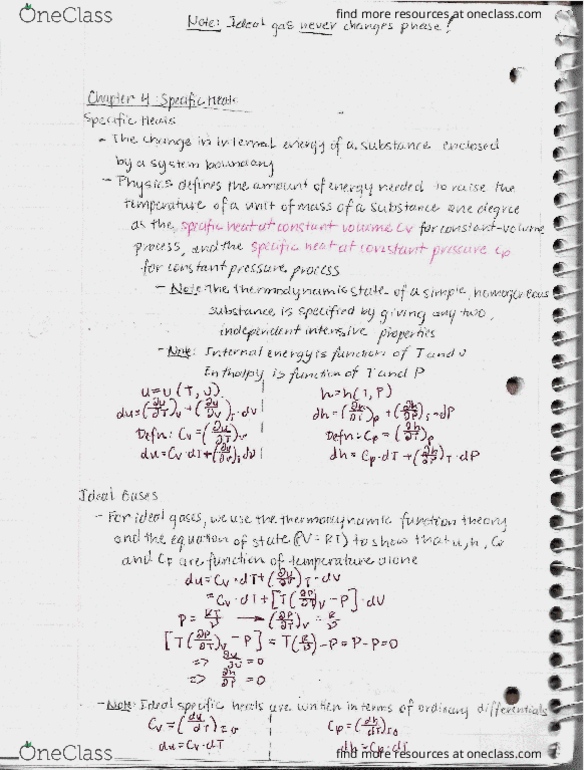 OneClass
find more resources at oneclass.com
Note: Ideal gas never changes phase!
find more resources at oneclass.com
Chapter 4: Specific Heats
Specific Heats
- The change in internal energy of a substance enclosed
by a system boundary
- Physics defines the amount of energy needed to raise the
temperature of a unit of mass of a substance one degree
as the specific heat at constant volume Cv for constant-volume
process, and the specific heat at constant pressure Cp
for constant pressure process
- Note: the thermodynamic state of a simple, homogeneous
substance is specified by giving any two,
independent intensive properties
- Note: Internal energy is function of T and v
Enthalpy is function of T and P
u = u(T, v)
du = (∂u/∂T)v + (∂u/∂v)T · dv
Defn: Cv = (∂u/∂T)v
du = Cv · dT + (∂u/∂v)T dv
h = h(T, P)
dh = (∂h/∂T)P + (∂h/∂P)T · dP
Defn: Cp = (∂h/∂T)P
dh = Cp · dT + (∂h/∂P)T · dP
Ideal Gases
- For ideal gases, we use the thermodynamic function theory
and the equation of state (PV = RT) to show that u, h, Cv
and Cp are function of temperature alone
du = Cv · dT + (∂u/∂v)T · dv
= Cv · dT + [T(∂P/∂T)v - P] · dv
P = RT/v → (∂P/∂T)v = R/v
[T(∂P/∂T)v - P] = T(R/v) - P = P - P = 0
=> ∂u/∂v = 0
=> ∂h/∂P = 0
- Note: Ideal specific heats are written in terms of ordinary differentials
Cv = (du/dT)
du = Cv · dT
Cp = (dh/dT)
dh = Cp · dT
OneClass
find more resources at oneclass.com